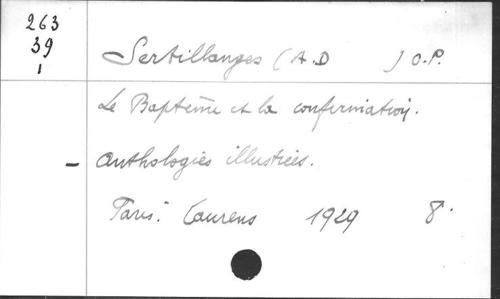 263
39
1
Sertillanges (A.D ) O.P.
Le Baptême et la confirmation.
- Anthologies illustrées.
Paris. Laurens 1929 8°